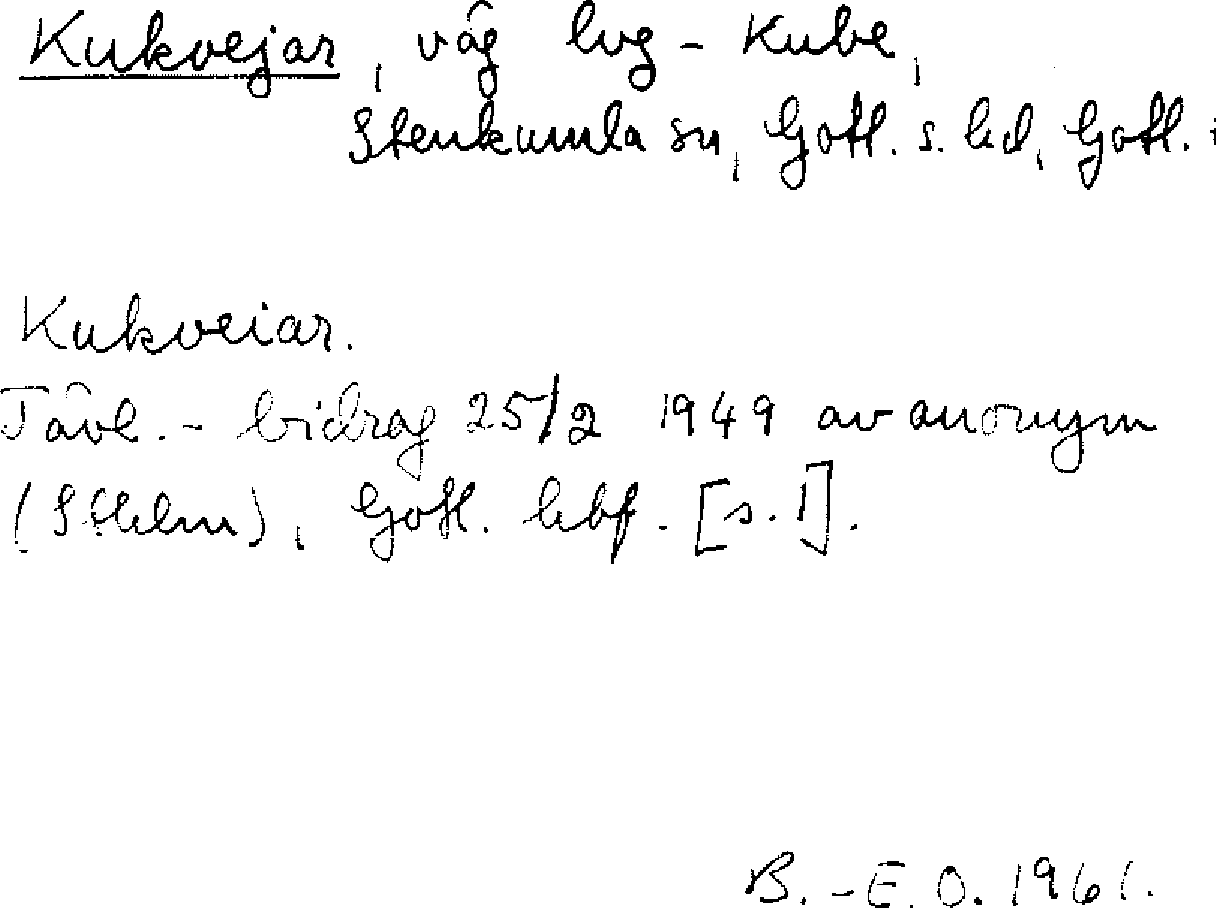 Kukvejar, väg lvg - Kube,
Stenkumla sn, Gotl. s. hd, Gotl.
Kukveiar.
Tävl. - bidrag 25/2 1949 av anonym
(Sthlm), Gotl. hbf. [s. 1].
B. - E. O. 1961.